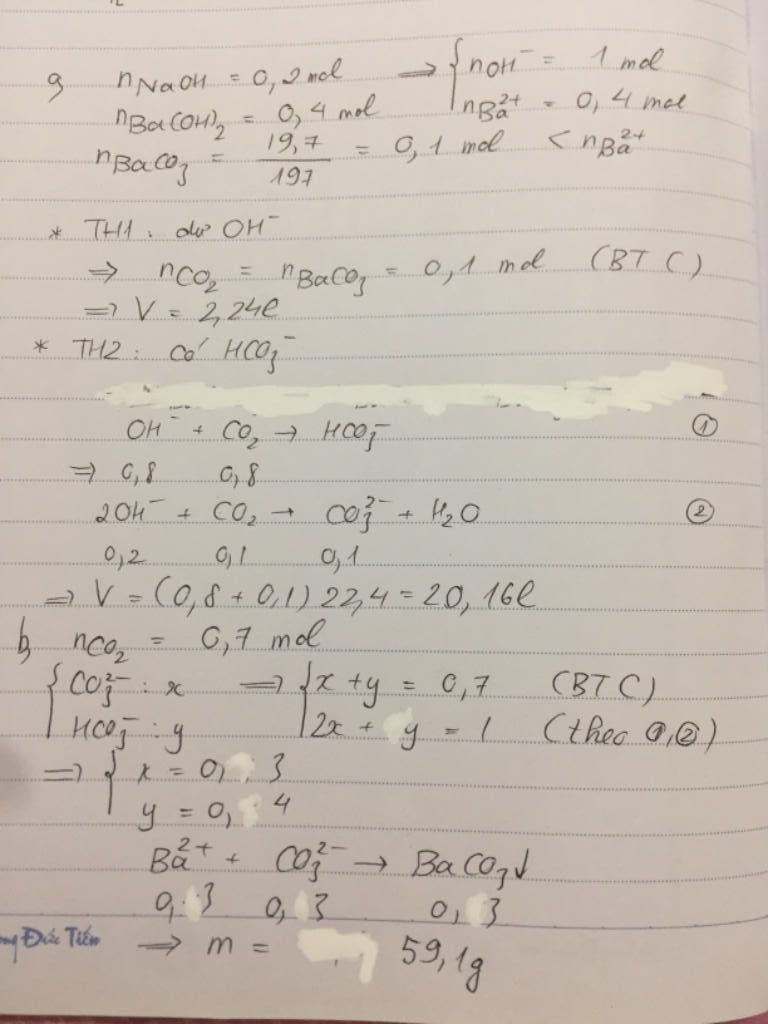 a, nNaOH = 0,2 mol ⇒ { nOH⁻ = 1 mol
nBa(OH)₂ = 0,4 mol nBa²⁺ = 0,4 mol
nBaCO₃ = 19,7 / 197 = 0,1 mol < nBa²⁺
* TH1 : dư OH⁻
⇒ nCO₂ = nBaCO₃ = 0,1 mol (BT C)
⇒ V = 2,24l
* TH2 : Có HCO₃⁻
OH⁻ + CO₂ → HCO₃⁻ ①
⇒ 0,8 0,8
2OH⁻ + CO₂ → CO₃²⁻ + H₂O ②
0,2 0,1 0,1
⇒ V = (0,8 + 0,1) 22,4 = 20,16l
b, nCO₂ = 0,7 mol
{ CO₃²⁻ : x ⇒ { x + y = 0,7 (BT C)
HCO₃⁻ : y 2x + y = 1 (theo ①,②)
⇒ { x = 0,3
y = 0,4
Ba²⁺ + CO₃²⁻ → BaCO₃↓
0,3 0,3 0,3
Đức Tiến ⇒ m = 59,1g